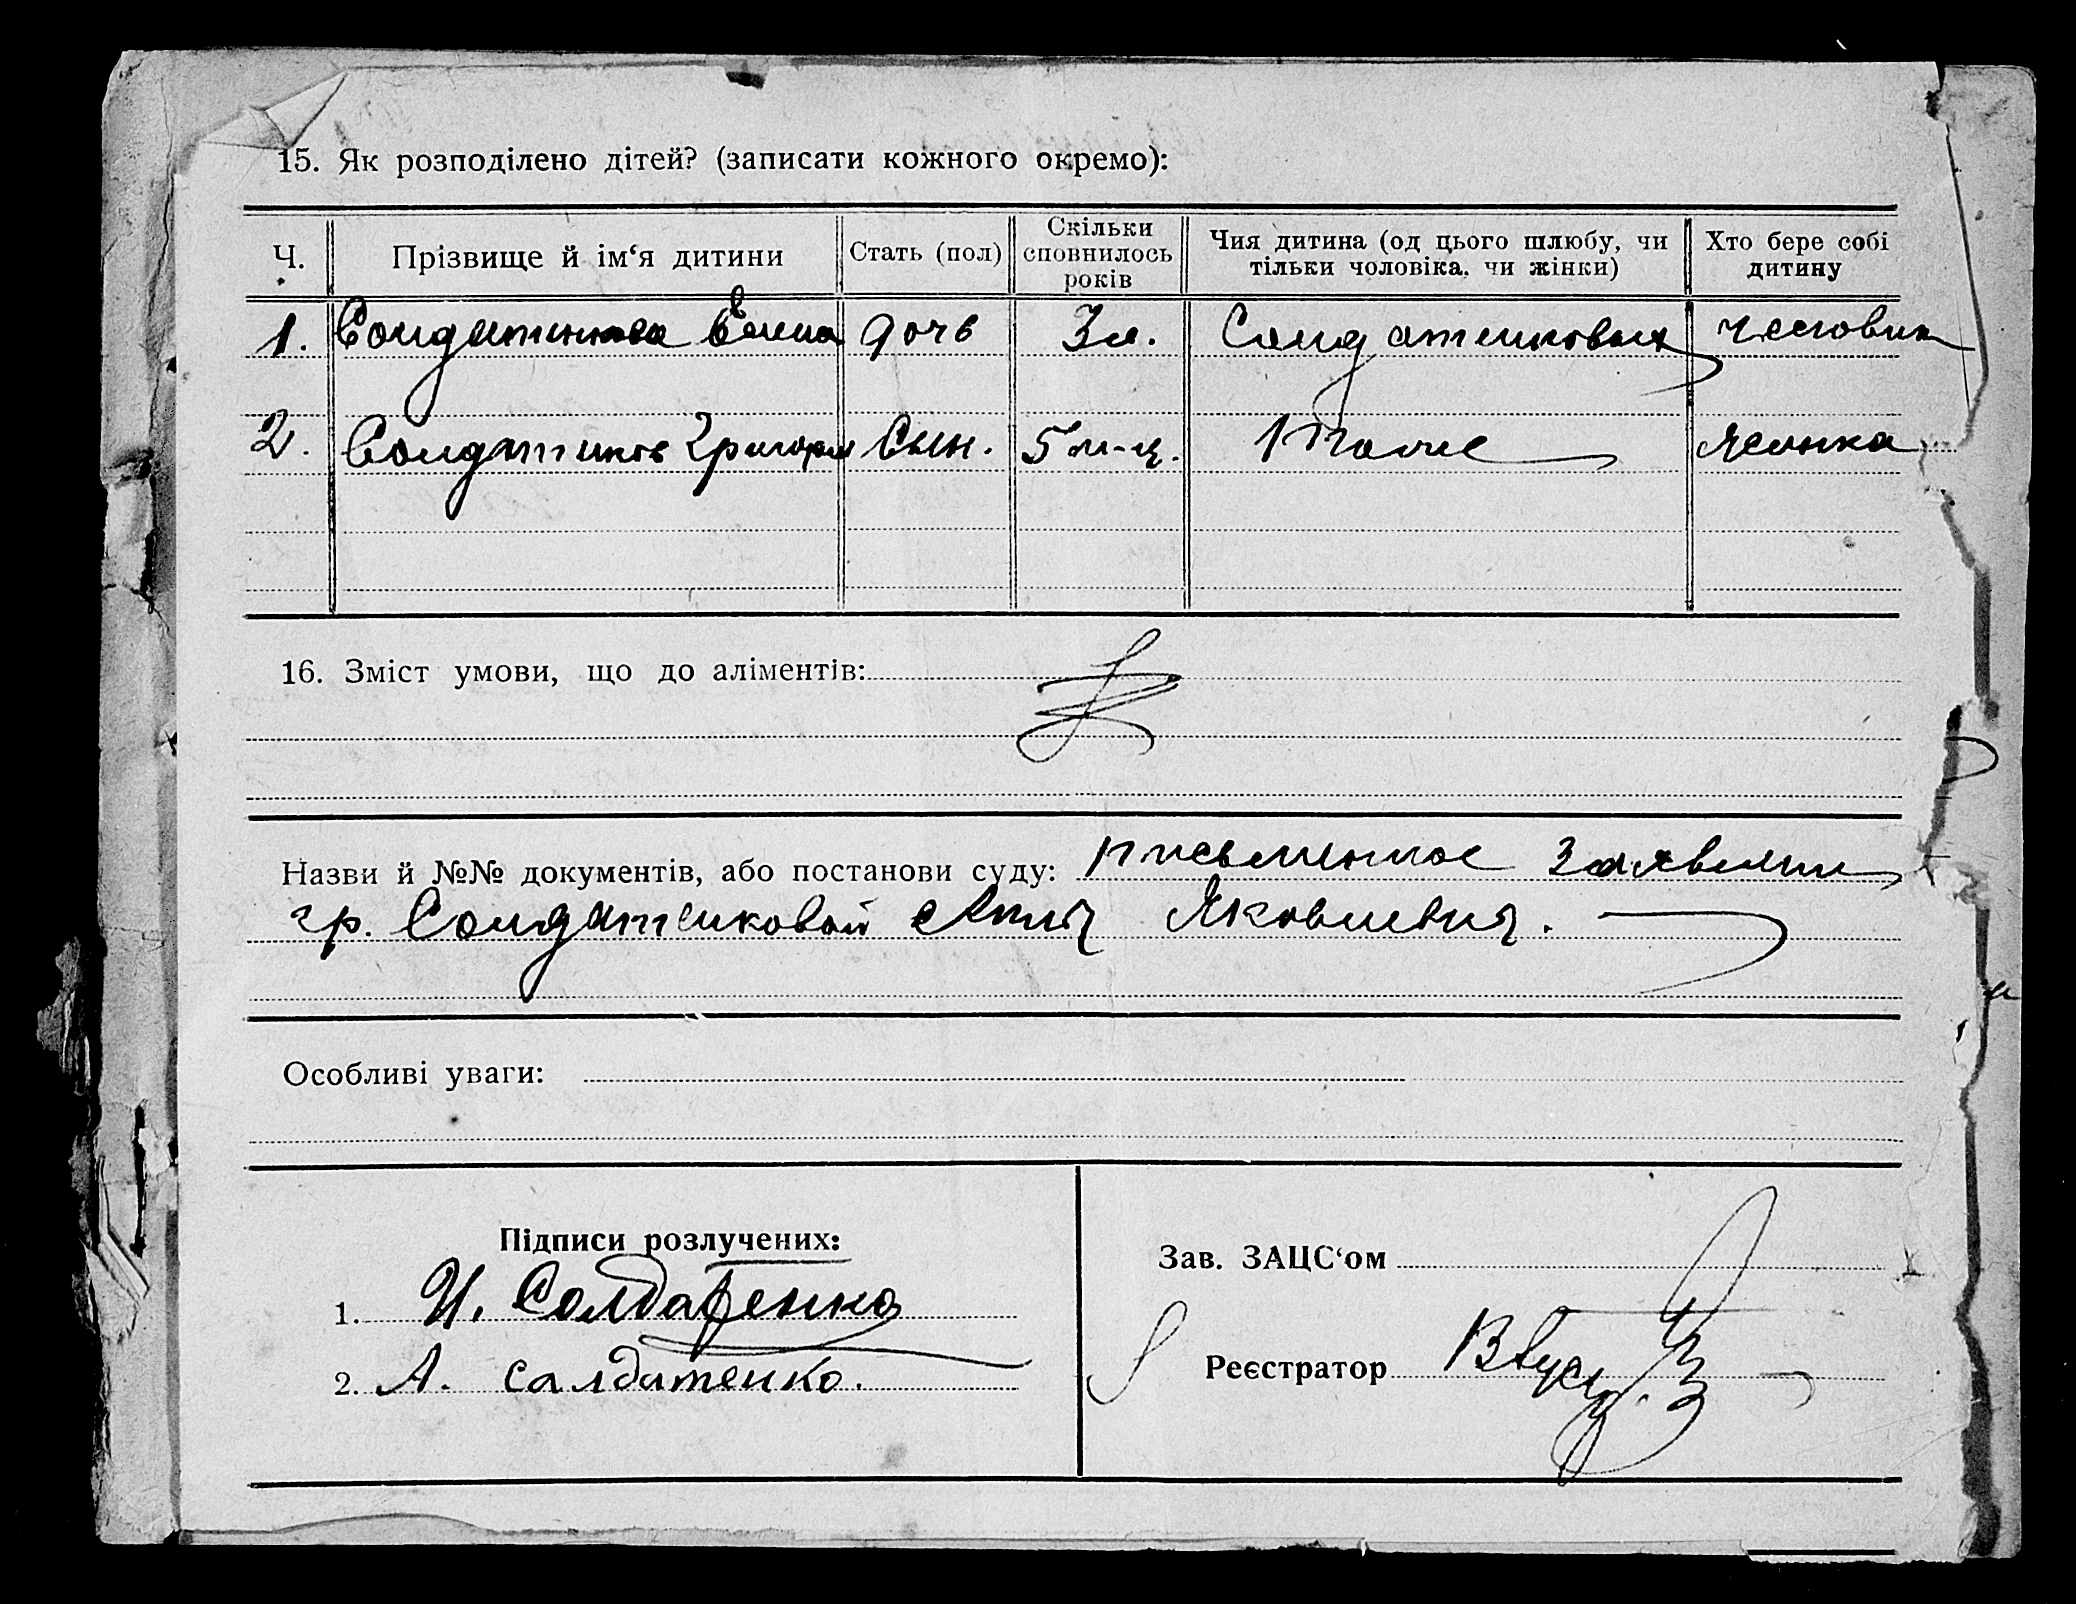 15. Як розподілено дітей? (записати кожного окремо):
Ч. Прізвище й ім‘я дитини Стать (пол) Скільки сповнилось років Чия дитина (од цього шлюбу, чи тільки чоловіка, чи жінки) Хто бере собі дитину
1. Солдатикова Елена дочь 3 л. Солдатенковых человик
2. Солдатиков Григорий Сын. 5 м-ц. Тоже жеинка
16. Зміст умови, що до аліментів:
Назви й №№ документів, або постанови суду: письменное заявление
гр. Солдатенковой Яковлевич.
Особливі уваги:
Підписи розлучених:
1. И. Солдатенко
2. А. Салдатенко.
Зав. ЗАЦС‘ом
Реєстратор